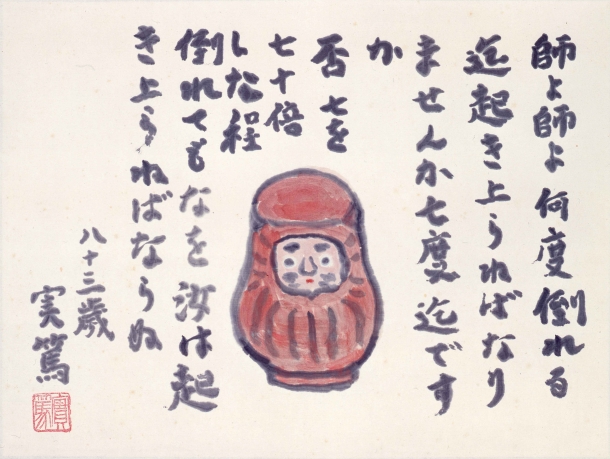 師よ師よ何度倒れる
迄起き上らねばなり
ませんか七度迄です
か
否七を
七十倍
した程
倒れてもなを汝は起
き上らねばならぬ
八十三歳
実篤
實篤